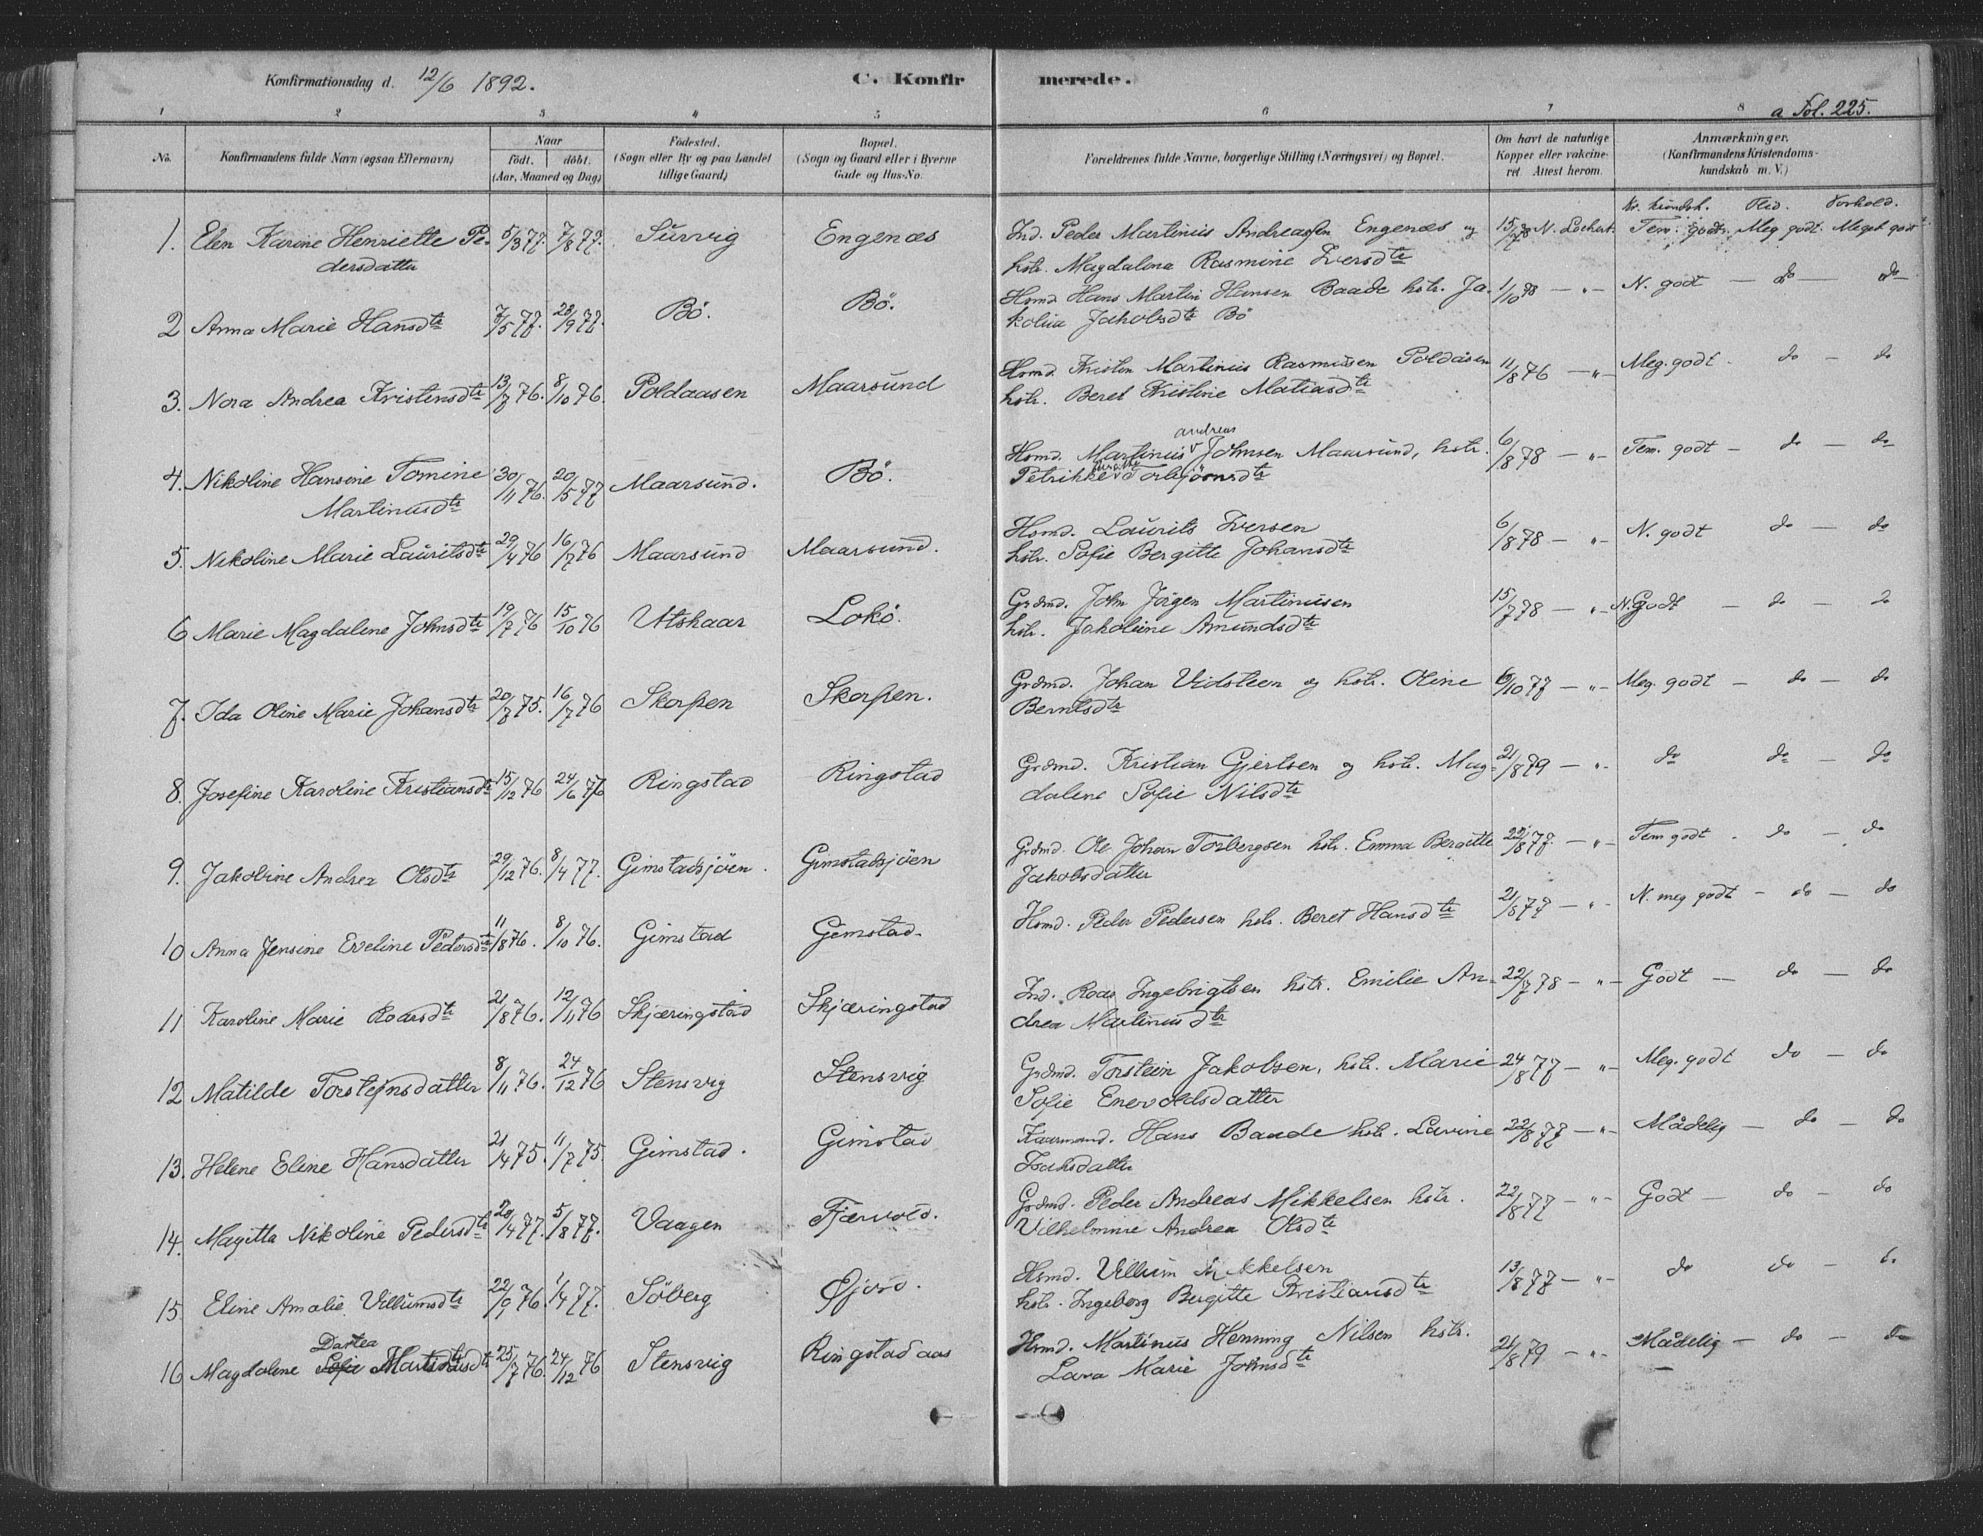 Konfirmationsdag d. 12/6 1892.
C. Konfirmerede.
a Fol. 225.
1 2 3 4 5 6 7 8
No.
Konfirmandens fulde Navn (ogsaa Efternavn)
Naar
født. døbt.
(Aar, Maaned og Dag)
Fødested.
(Sogn eller By og paa Landet
tillige Gaard)
Bopæl.
(Sogn og Gaard eller i Byerne
Gade og Hus-No.
Forældrenes fulde Navne, borgerlige Stilling (Næringsvei) og Bopæl.
Om havt de naturlige
Kopper eller vakcine-
ret. Attest herom.
Anmærkninger.
(Konfirmandens Kristendoms-
kundskab m. V.)
Kr. kundsk. Flid. Forhold.
1. Elen Karine Henriette Pe- 5/3 77. 7/8 77. Survig Engenæs Ind. Peder Martinius Andreassen Engenæs og 15/7 78 N. Lochert. Tem. godt. Meg godt. Meget godt
dersdatter hstr. Magdalena Rasmine Iversdtr
2 Anna Marie Hansdtr 7/5 77. 23/9 77. Bö. Bö. Hsmd. Hans Martin Hansen Baade hstr. Ja- 1/10 78 — " — N. godt — do — do
kolina Jakobsdtr Bö
3. Nora Andrea Kristensdtr 13/7 76. 8/10 76. Poldaasen Maarsund Hsmd. Kristen Martinius Rasmussen Poldåsen 11/8 76 — " — Meg. godt. do — do
hstr. Beret Kristine Matiasdtr
4. Nikoline Hansine Tomine 30/11 76. 20/5 77 Maarsund. Bö. Hsmd. Martinus Andreas Johnsen Maarsund, hstr. 6/8 78 — " — Tem. godt — do — do
Martinusdtr Petrikke Torbjörnsdtr
5. Nikoline Marie Lauritsdtr 29/4 76 16/7 76 Maarsund Maarsund. Hsmd. Laurits Iversen 6/8 78 — " — N. godt do — do
hstr. Sofie Bergitte Johansdtr
6 Marie Magdalene Johnsdtr 19/7 76 15/10 76 Utskaar Lokö. Grdmd. John Jörgen Martinusen 15/7 78 — " — N. Godt — do — do
hstr. Jakobine Amundsdtr
7. Ida Oline Marie Johansdtr 20/7 75. 16/7 76 Skorpen Skorpen. Grdmd. Johan Vidsteen og hstr. Oline 6/10 77 — " — Meg. godt — do — do
Berntsdtr
8. Josefine Karoline Kristiansdtr 15/12 76 24/6 76 Ringstad Ringstad Grdmd. Kristian Gjertsen og hstr. Mag- 21/8 79 — " — do do — do
dalene Sofie Nilsdtr
9. Jakobine Andrea Olsdtr 29/12 76. 8/4 77. Gimstadsjöen. Gimstadsjöen Grdmd. Ole Johan Torbergsen hstr. Emma Bergitte 22/8 77. — " Tem godt. do — do
Jakobsdatter
10 Anna Jensine Eveline Pedersdtr 11/8 76. 8/10 76. Gimstad Gimstad. Hsmd. Peder Pedersen hstr. Beret Hansdtr 21/8 77 — " — N. meg godt — do — do
11 Karoline Marie Roarsdtr 21/8 76. 12/11 76 Skjæringstad Skjæringstad Ind. Roar Ingebrigtsen hstr. Emilie An- 22/7 78 — " — Godt — do — do
drea Martinusdtr
12 Matilde Torsteinsdatter 8/11 76. 24/12 76 Stensvig Stensvig Grdmd. Torstein Jakobsen, hstr. Marie 24/8 77 — " — Meg. godt do — do
Sofie Enevoldsdatter
13. Helene Eline Hansdatter 21/4 75. 11/7 75 Gimstad. Gimstad Kaarmand. Hans Baade hstr. Lavine 22/8 77 — " — Mådelig — do — do
Isaksdatter
14. Magitta Nikoline Pedersdtr 20/4 77. 5/8 77. Vaagen Fjærvold. Grdmd. Peder Andreas Mikkelsen hstr. 22/8 77 — " — Godt — do — do
Vilhelmine Andrea Olsdtr
15 Eline Amalie Villumsdtr 22/9 76 1/4 77. Söberg Øjord. Hsmd. Villum Mikkelsen 13/8 77 — " — do do — do
hstr. Ingeborg Bergitte Kristiansdtr
16 Magdalene Sofie Dortea Martinusdtr 25/7 76. 24/12 76 Stensvig Ringstadaas Hsmd. Martinus Henning Nilsen hstr. 21/8 79 — " — Mådelig — do — do
Lava Marie Johnsdtr